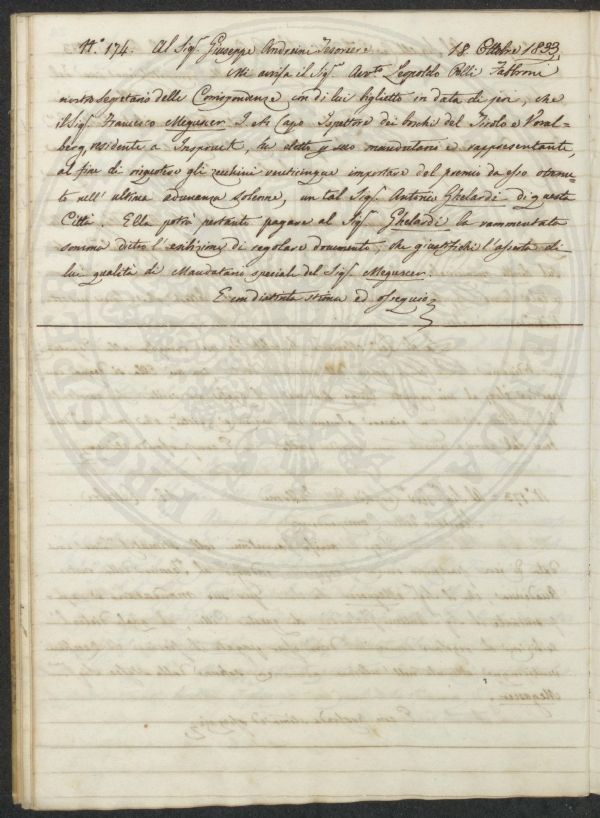 N.º 174. Al Sig.r Giuseppe Andreini Tesoriere 18. Ottobre 1833.
Mi avvisa il Sig.r Avv.to Leopoldo Pelli Fabbroni
nostro Segretario delle Corrispondenze con di lui biglietto in data di jeri, che
il Sig.r Francesco Megusser I. R. Capo Ispettore dei boschi del Tirolo e Voral=
berg, residente a Inspruck, ha eletto p suo mandatario e rappresentante,
al fine di riquotere gli zecchini venticinque importare del premio da esso otenu=
to nell' ultima adunanza solenne, un tal Sig.r Antonio Ghelardi di questa
Città. Ella potrà pertanto pagare al Sig.r Ghelardi la rammentata
somma dietro l'esibizione di regolare documento, che giustifichi l'asserta di
lui qualità di Mandatario speciale del Sig.r Megusser.
E con distinta stima ed ossequio